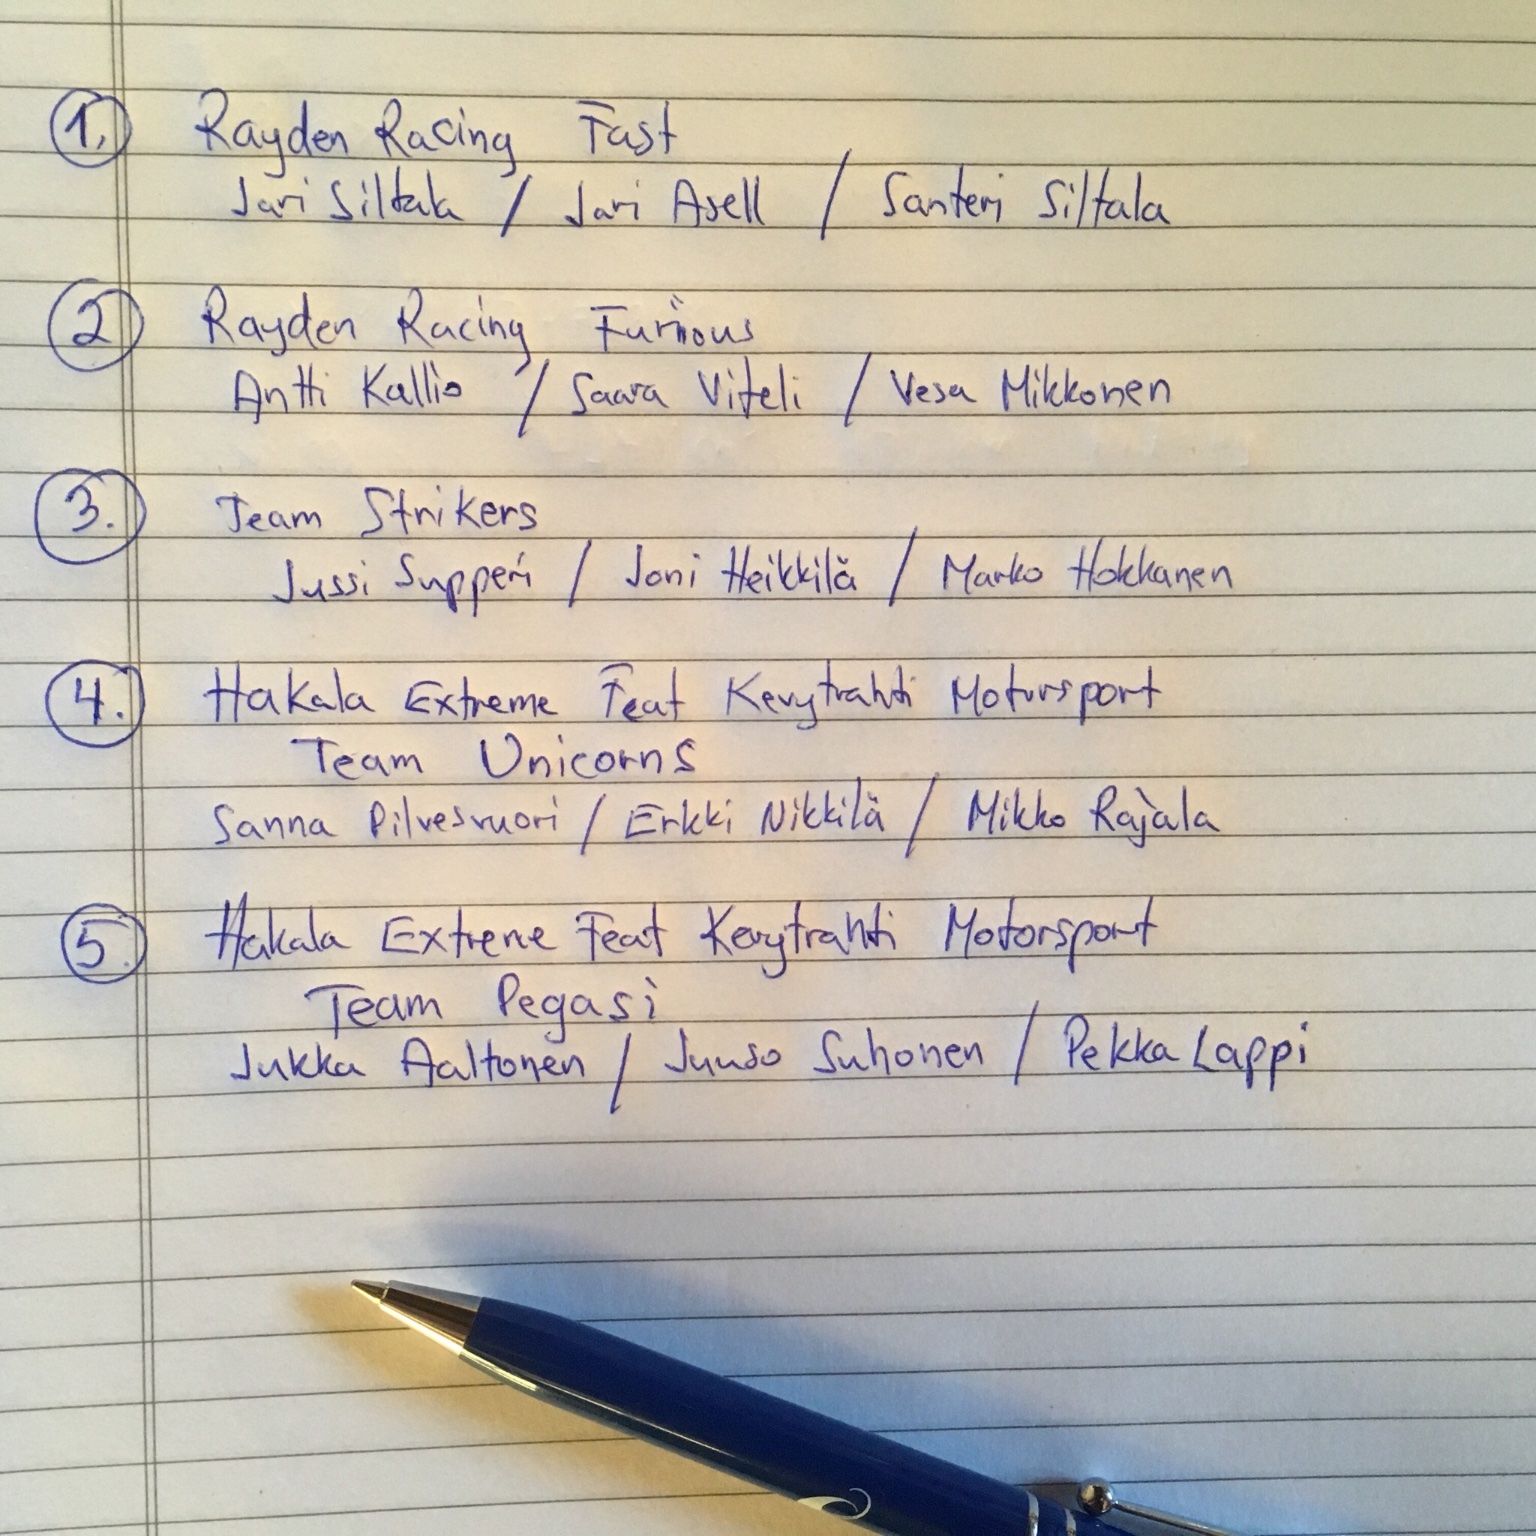 1. Rayden Racing Fast
Jari Siltala / Jari Asell / Santeri Siltala
2 Rayden Racing Furious
Antti Kallio / Saara Viteli / Vesa Mikkonen
3. Team Strikers
Jussi Supperi / Joni Heikkilä / Marko Hokkanen
4. Hakala Extreme Feat Kevytrahti Motorsport
Team Unicorns
Sanna Pilvesvuori / Erkki Nikkilä / Mikko Rajala
5. Hakala Extreme Feat Kevytrahti Motorsport
Team Pegasi
Jukka Aaltonen / Juuso Suhonen / Pekka Lappi